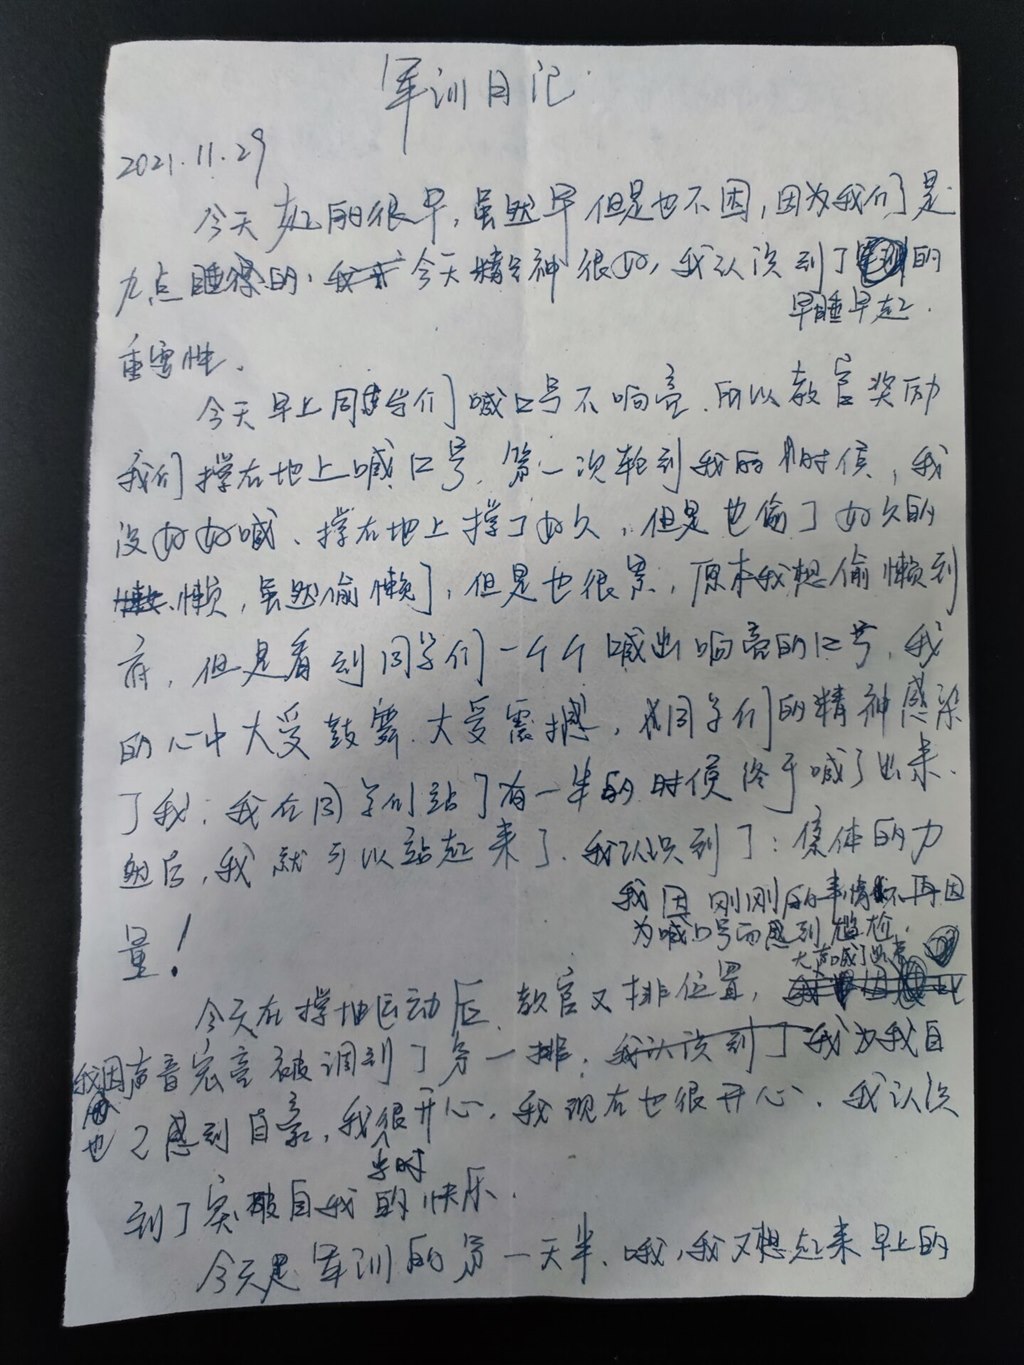 军训日记
2021.11.29
今天起的很早，虽然早但是也不困，因为我们是
九点睡得的，今天精神很好，我认识到了的
早睡早起.
重要性.
今天早上同学们喊口号不响亮、所以教官奖励
我们撑在地上喊口号、第一次轮到我的时候，我
没好好喊、撑在地上撑了好久，但是也偷了好久的
懒，虽然偷懒了，但是也很累，原本我想偷懒到
底，但是看到同学们一个个喊出响亮的口号，我
的心中大受鼓舞、大受震撼，同学们的精神感染
了我；我在同学们站了有一半的时候终于喊了出来、
然后，我就可以站起来了、我认识到了：集体的力
我因刚刚的事情不再因
为喊口号而感到尴尬.
量！
大声喊了出来
今天在撑地运动后、教官又排位置，
我因声音宏亮被调到了第一排，我为我自
也己感到自豪，我很开心，我现在也很开心、我认识
当时
到了突破自我的快乐.
今天是军训的第一天半、哦，我又想起来早上的